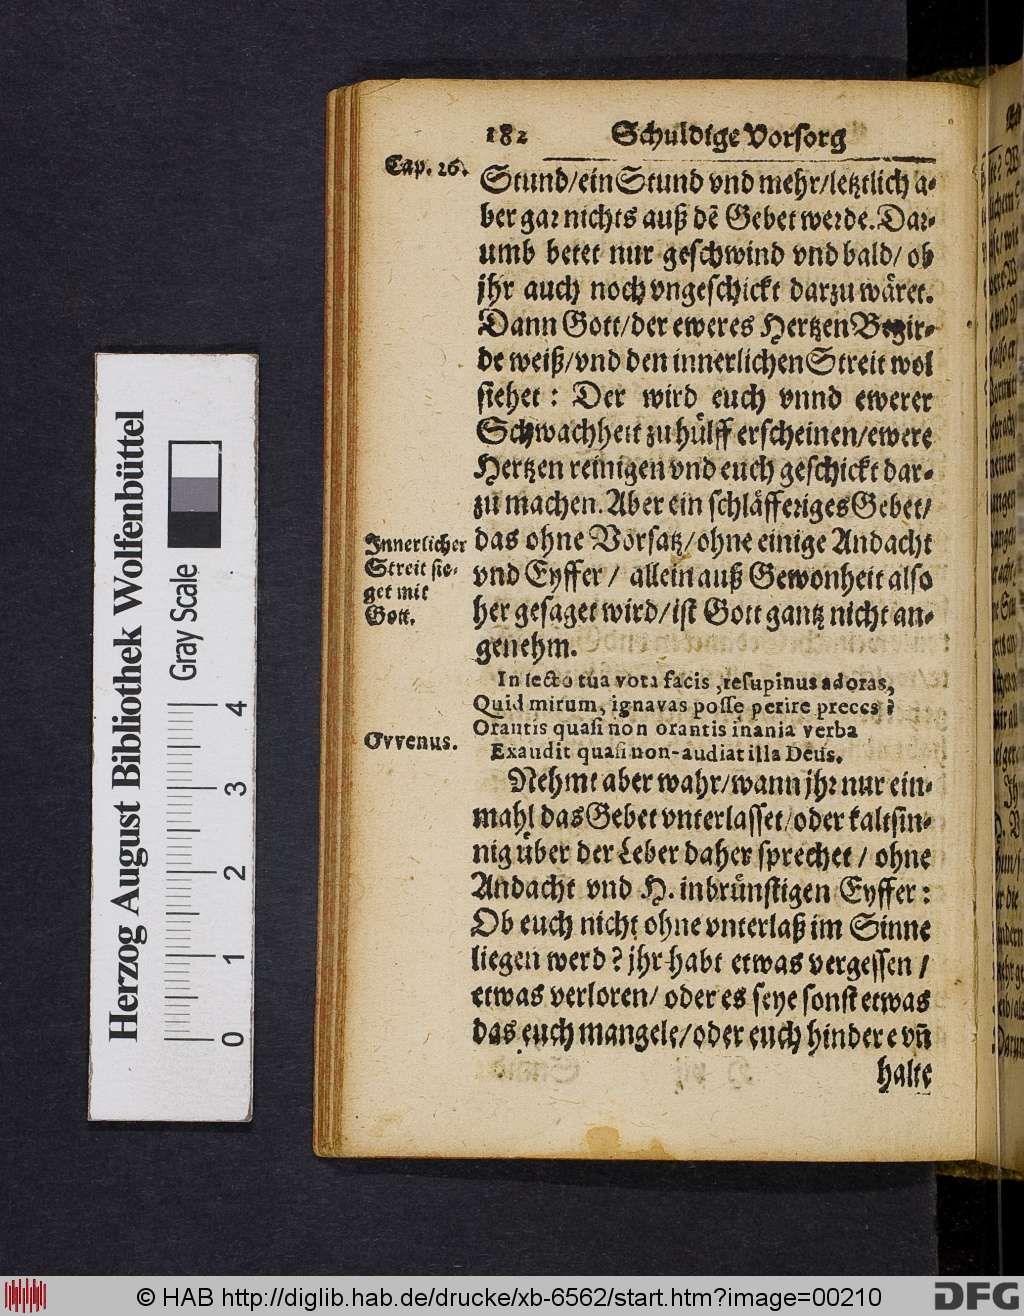 182 Schuldige Vorsorg
Cap. 26.
Stund/ein Stund vnd mehr/letztlich a-
ber gar nichts auß dē Gebet werde. Dar-
umb betet nur geschwind vnd bald/ ob
jhr auch noch vngeschickt darzu wäret.
Dann Gott/der eweres Hertzen Begir-
de weiß/vnd den innerlichen Streit wol
siehet: Der wird euch vnnd ewerer
Schwachheit zu hülff erscheinen/ewere
Hertzen reinigen vnd euch geschickt dar-
zu machen. Aber ein schläfferiges Gebet/
das ohne Vorsatz/ohne einige Andacht
vnd Eyffer/ allein auß Gewonheit also
her gesaget wird/ist Gott gantz nicht an-
genehm.
Innerlicher
Streit sie-
get mit
Gott.
In lecto tua vota facis, resupinus adoras,
Quid mirum, ignavas posse perire preces?
Orantis quasi non orantis inania verba
Exaudit quasi non-audiat illa Deus.
Ovvenus.
Nehmt aber wahr/wann jhr nur ein-
mahl das Gebet vnterlasset/oder kaltsin-
nig über der Leber daher sprechet/ ohne
Andacht vnd H. inbrünstigen Eyffer:
Ob euch nicht ohne vnterlaß im Sinne
liegen werd? jhr habt etwas vergessen/
etwas verloren/ oder es seye sonst etwas
das euch mangele/oder euch hindere vñ
halte
Herzog August Bibliothek Wolfenbüttel
Gray Scale
0 1 2 3 4
© HAB http://diglib.hab.de/drucke/xb-6562/start.htm?image=00210
DFG